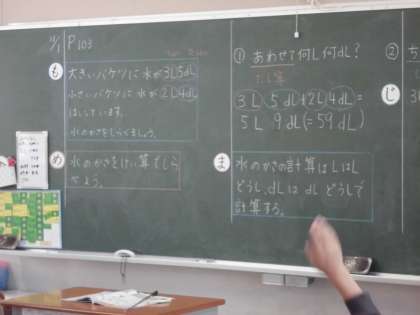 P103
も
大きいバケツに水が3L5dL
小さいバケツに水が2L4dL
はいっています。
水のかさをしらべましょう。
め
水のかさをけい算でしら
べよう。
① あわせて何L何dL?
たし算
3L 5dL+2L 4dL=
5L 9dL(=59dL)
ま
水のかさの計算はLはL
どうし、dLは dL どうしで
計算する。
②
じ